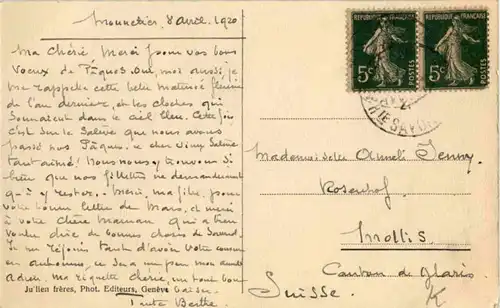 Monnetier, 8 avril. 1920
Ma Chérie, Merci pour vos bons
Voeux de Pâques. Oui, moi aussi je
me rappelle cette belle matinée fleurie
de l'an dernier, et les cloches qui
sonnaient dans le ciel bleu. Cette fois
c'est sur le Salève que nous avons
passé nos Pâques, ce cher vieux Salève
tant aimé! Nous nous y trouvons si
bien que nos fillettes ne demandent
qu'à y rester. Merci, ma fille, pour
votre bonne lettre de Mars, et merci
à votre chère Maman qui a bien
voulu dire de bonnes choses de
Je me réjouis tant d'avoir votre
en automne, ce sera un peu mon
Adieu, ma Riquette chérie, un tout bon
Baiser.
Tante Berthe
Jullien frères, Phot. Editeurs, Genève
REPUBLIQUE FRANÇAISE
5c POSTES
REPUBLIQUE FRANÇAISE
5c POSTES
Hte SAVOIE
Mademoiselle Anneli Jenny
Rosenhof
Mollis
Canton de Glaris
Suisse.